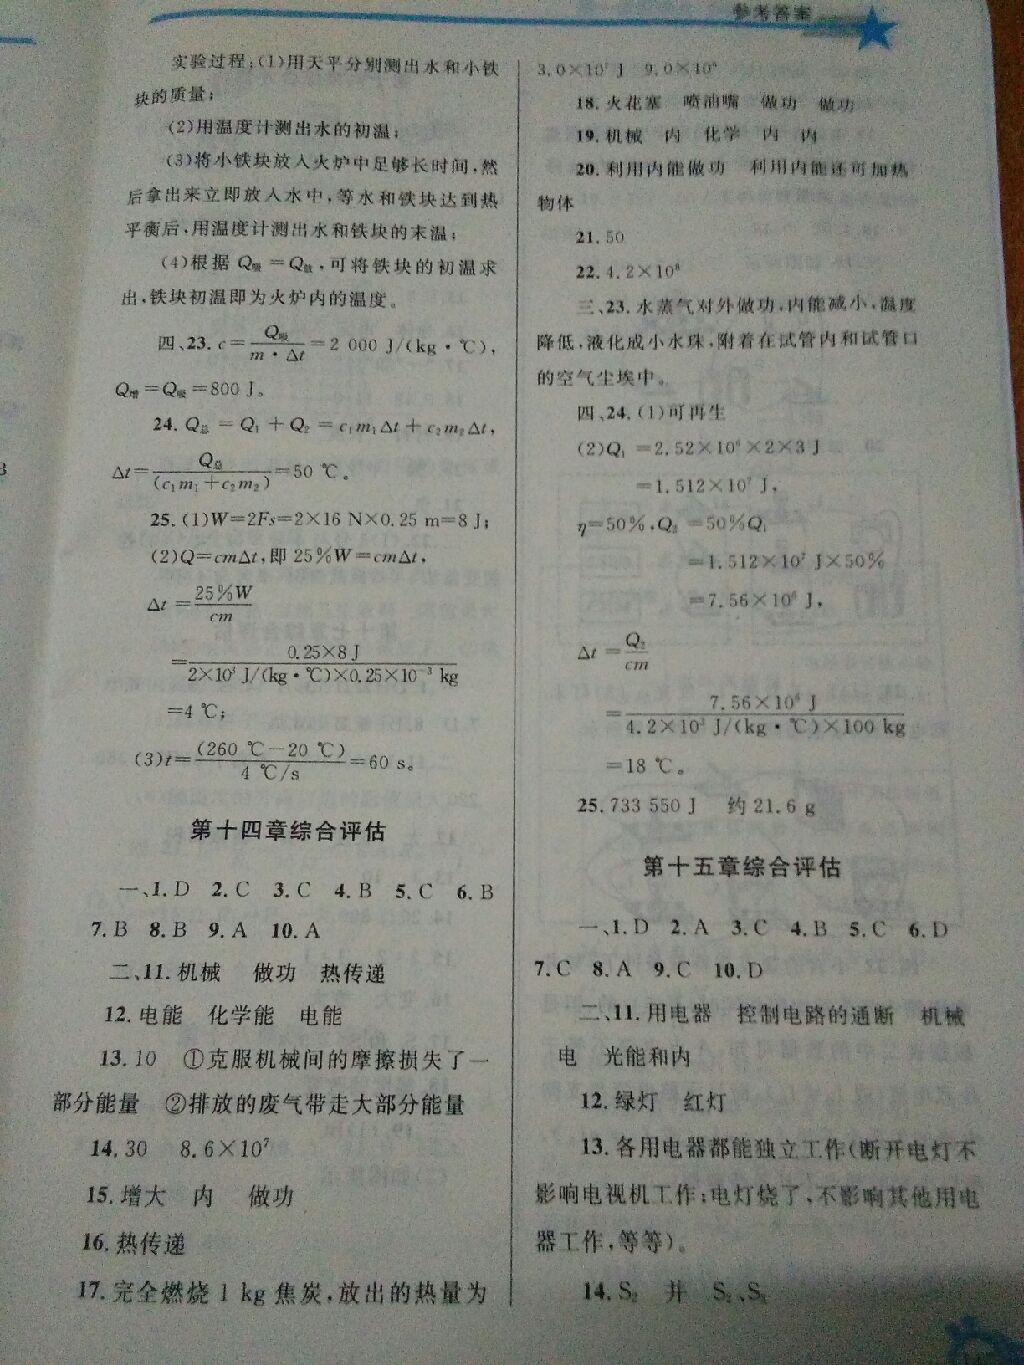 参考答案
实验过程:(1)用天平分别测出水和小铁
块的质量;
(2)用温度计测出水的初温;
(3)将小铁块放入火炉中足够长时间,然
后拿出来立即放入水中,等水和铁块达到热
平衡后,用温度计测出水和铁块的末温;
(4)根据 Q吸=Q放,可将铁块的初温求
出,铁块初温即为火炉内的温度。
四、23. c=Q吸/(m·Δt)=2 000 J/(kg·℃),
Q增=Q吸=800 J。
24. Q总=Q₁+Q₂=c₁m₁Δt+c₂m₂Δt,
Δt=Q总/(c₁m₁+c₂m₂)=50 ℃。
25. (1)W=2Fs=2×16 N×0.25 m=8 J;
(2)Q=cmΔt,即 25%W=cmΔt,
Δt=25%W/cm
=0.25×8 J/2×10³ J/(kg·℃)×0.25×10⁻³ kg
=4 ℃;
(3)t=(260 ℃-20 ℃)/4 ℃/s=60 s。
第十四章综合评估
一、1. D 2. C 3. C 4. B 5. C 6. B
7. B 8. B 9. A 10. A
二、11. 机械 做功 热传递
12. 电能 化学能 电能
13. 10 ①克服机械间的摩擦损失了一
部分能量 ②排放的废气带走大部分能量
14. 30 8.6×10⁷
15. 增大 内 做功
16. 热传递
17. 完全燃烧 1 kg 焦炭,放出的热量为
3.0×10⁷ J 9.0×10⁶
18. 火花塞 喷油嘴 做功 做功
19. 机械 内 化学 内 内
20. 利用内能做功 利用内能还可加热
物体
21. 50
22. 4.2×10⁸
三、23. 水蒸气对外做功,内能减小,温度
降低,液化成小水珠,附着在试管内和试管口
的空气尘埃中。
四、24. (1)可再生
(2)Q₁=2.52×10⁶×2×3 J
=1.512×10⁷ J,
η=50%,Q₂=50%Q₁
=1.512×10⁷ J×50%
=7.56×10⁶ J,
Δt=Q₂/cm
=7.56×10⁶ J/4.2×10³ J/(kg·℃)×100 kg
=18 ℃。
25. 733 550 J 约 21.6 g
第十五章综合评估
一、1. D 2. A 3. C 4. B 5. C 6. D
7. C 8. A 9. C 10. D
二、11. 用电器 控制电路的通断 机械
电 光能和内
12. 绿灯 红灯
13. 各用电器都能独立工作(断开电灯不
影响电视机工作;电灯烧了,不影响其他用电
器工作,等等)。
14. S₂ 并 S₂、S₃